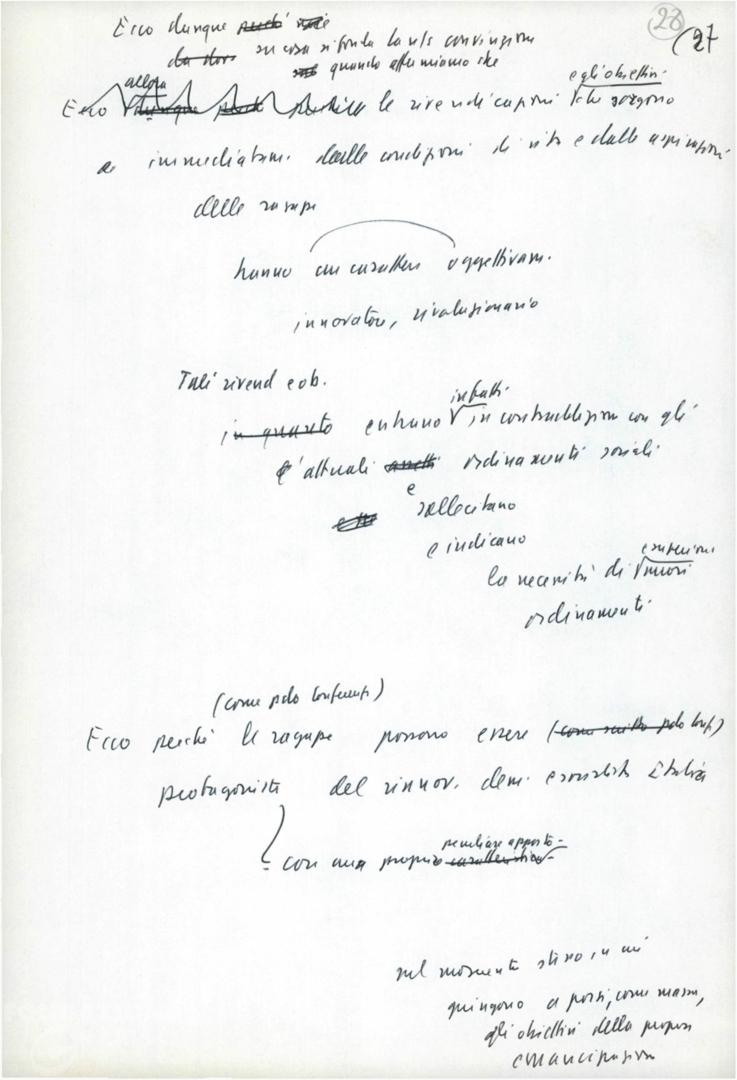 28
27
Ecco dunque perché
da dove su cosa si fonda la ns convinzione
quando affermiamo che
allora
e gli obiettivi
Ecco dunque perché le rivendicazioni che sorgono
immediatam. dalle condizioni di vita e dalle aspirazioni
delle ragazze
hanno un carattere oggettivam.
innovatore, rivoluzionario
Tali rivend e ob.
infatti
in quanto entrano in contraddizione con gli
attuali assetti ordinamenti sociali
e sollecitano
e indicano
la necessità di nuovi
ordinamenti
(come polo conferenza)
Ecco perché le ragazze possono essere (come scritto polo conf.)
protagoniste del rinnov. dem. e socialista Italia
peculiare apporto
con una propria caratteristica
nel momento stesso in cui
giungono a porsi, come massa,
gli obiettivi della propria
emancipazione